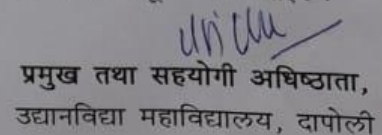 प्रमुख तथा सहयोगी अधिष्ठाता,
उद्यानविद्या महाविद्यालय, दापोली